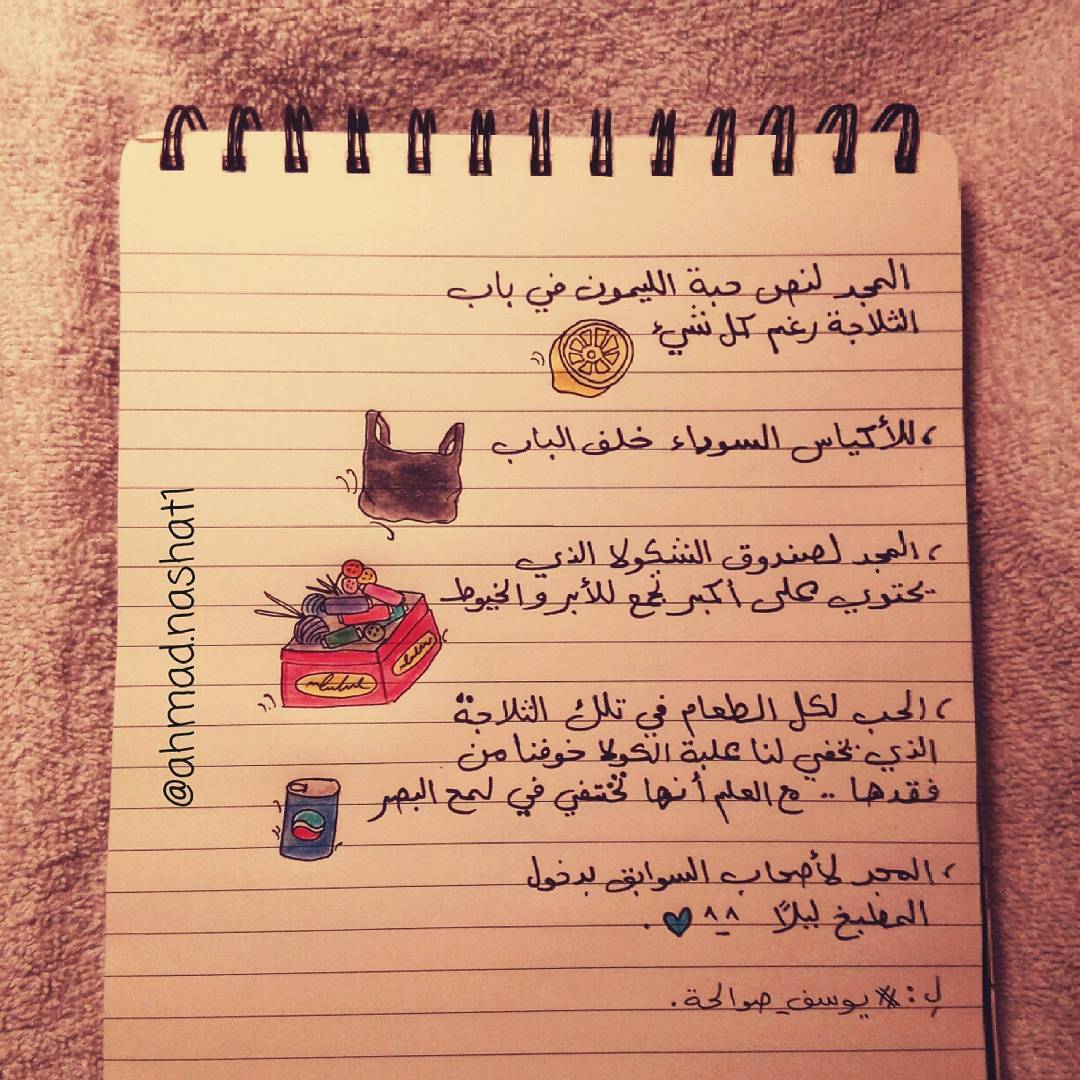 المجد لنص حبة الليمون في باب
الثلاجة رغم كل شيء
، للأكياس السوداء خلف الباب
، المجد لصندوق الشكولا الذي
يحتوي على أكبر تجمع للأبر والخيوط
، الحب لكل الطعام في تلك الثلاجة
الذي يخفي لنا علبة الكولا خوفنا من
فقدها .. مع العلم أنها تختفي في لمح البصر
، المجد لأصحاب السوابق بدخول
المطبخ ليلًا ^_^ .
لِ : # يوسف_صوالحة .
@ahmad.nashat1